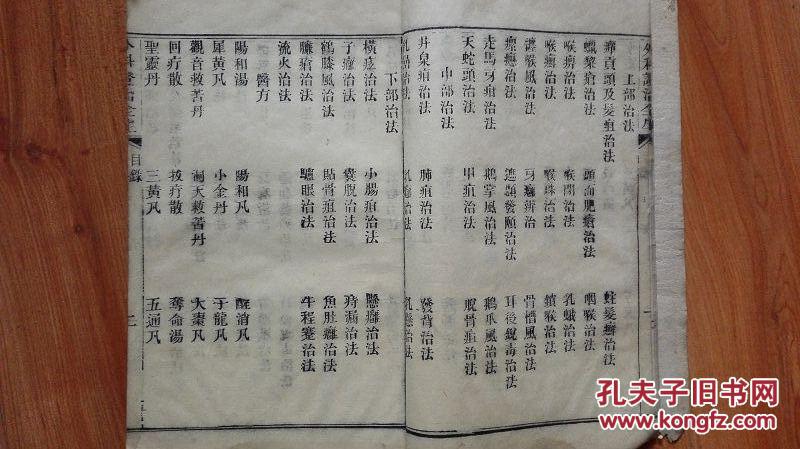 上部治法
瘰貢頭及髮疽治法
蛀髮癬治法
蠟棃瘡治法
頭面肥瘡治法
咽喉治法
喉痹治法
喉閉治法
乳蛾治法
喉癤治法
喉珠治法
鎖喉治法
纏喉風治法
牙癰治法
骨槽風治法
瘂癮治法
遮頭發頤治法
耳後銳毒治法
走馬牙疳治法
鵝掌風治法
鵝爪風治法
天蛇頭治法
甲疽治法
脫骨疽治法
中部治法
井泉疽治法
肺疽治法
發背治法
下部治法
橫痃治法
小腸疽治法
懸癰治法
子癰治法
囊脫治法
痔漏治法
鶴膝風治法
貼骨疽治法
魚肚癰治法
臁瘡治法
鱔眼治法
牛程蹇治法
流火治法
醫方
陽和湯
陽和凡
醒消凡
犀黃凡
小金丹
子龍凡
觀音救苦丹
洞天救苦丹
大棗凡
回疔散
拔疔散
奪命湯
聖靈丹
三黃凡
五通凡
目錄
二
孔夫子旧书网
KONGFZ.COM